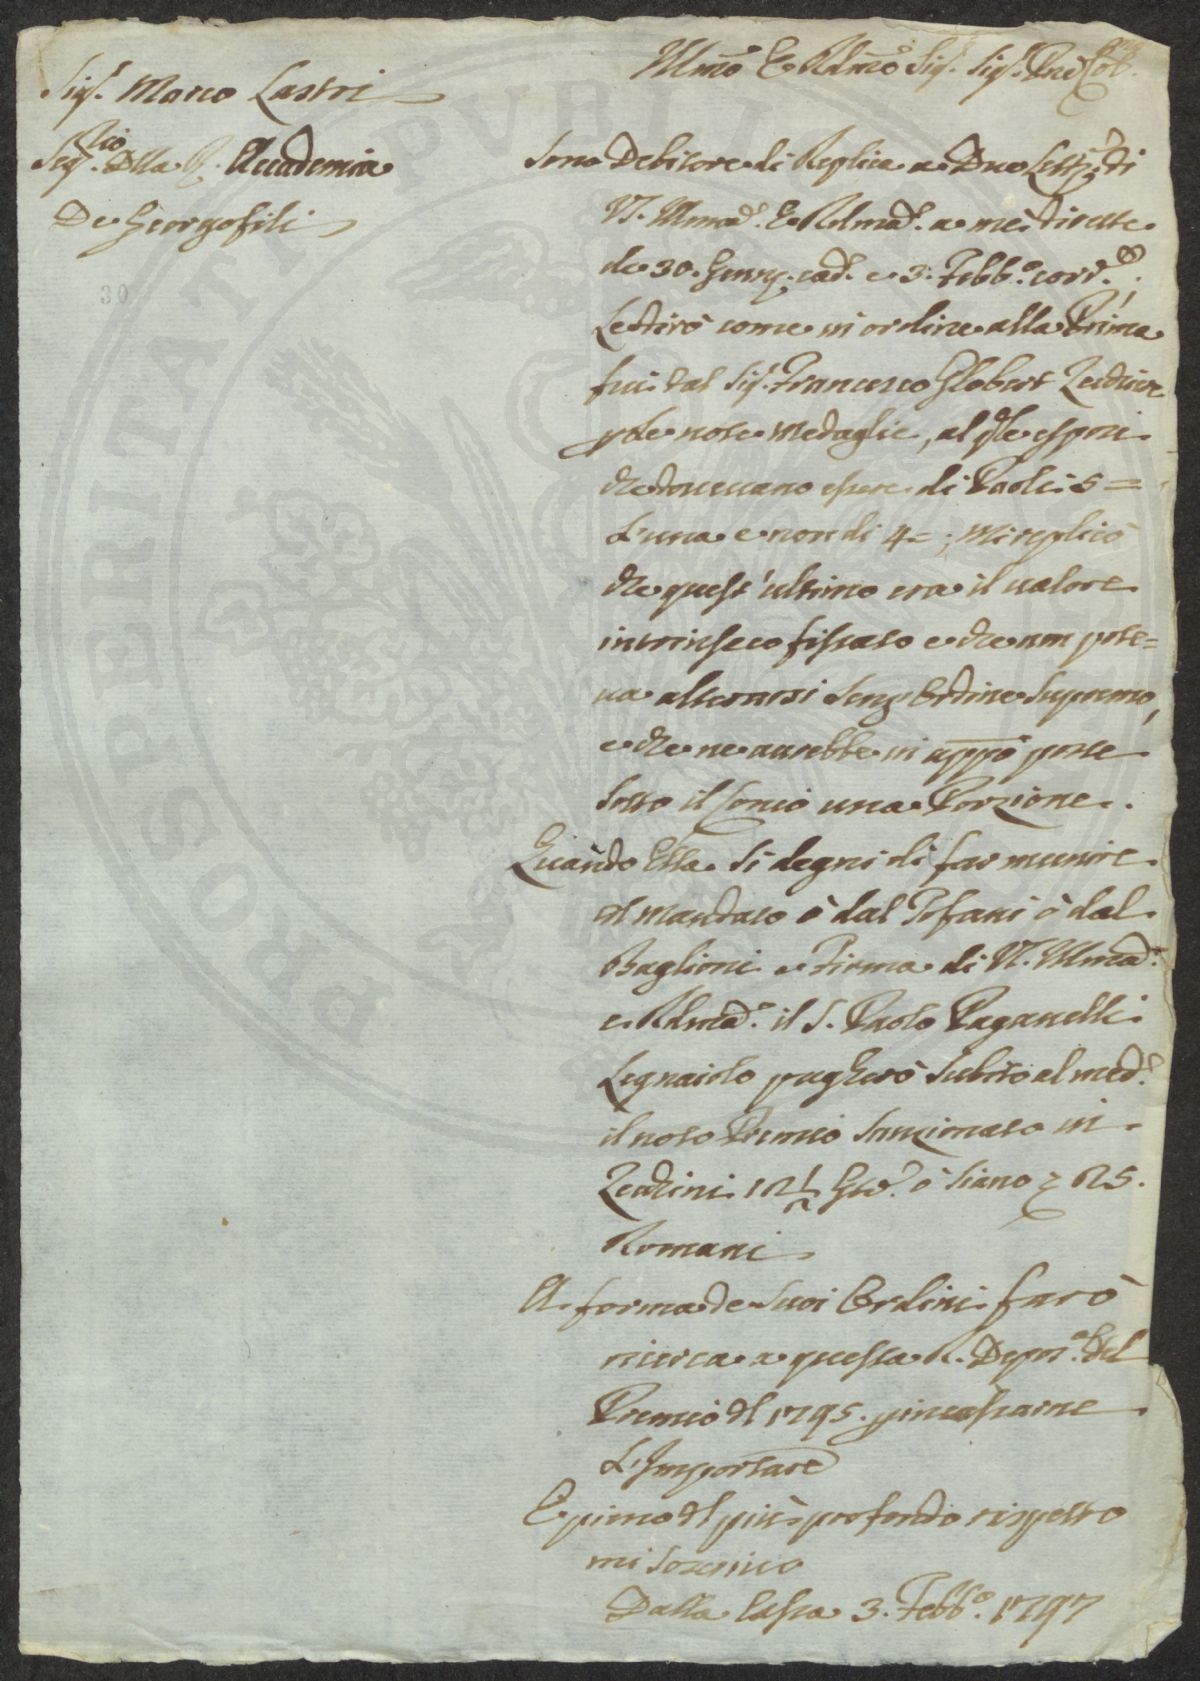 Sig.r Marco Lastri
Seg.rio Della R. Accademia
De Georgofili
30
Illmo E Rdmo Sig. Sig. Pne Col.
Sono Debitore di Replica a Due Lett.e di
V. Illma E Rdma a me dirette
de 30. Genn.o cad.o e 3. Febb.o corr.e;
Le dirò come in ordine alla Prima
fui dal Sig.r Francesco Globert Zecchier
p le note Medaglie, al qle esposi
che dovevano essere di Paoli 5 =
L'una e non di 4 = ; Mi replicò
che quest'ultimo era il valore
intrinseco fissato e che non pote=
va alterarsi senz'Ordine Supremo,
e che ne avrebbe in appo poste
sotto il Conio una Porzione.
Quando Ella si degni di far munire
il Mandato ò dal Tofani ò dal
Baglioni e Firma di V. Illma
e Rdma il S. Paolo Paganelli
Legnaiolo pagherò subito al med.o
il noto Premio Sanzionato in
Zecchini 12 1/2 ò siano 25.
Romani
A forma de suoi Ordini farò
ricerca a questa R. Depos.a del
Premio del 1795. p incassarne
L'Importare
E pieno del più profondo rispetto
mi soscrivo
Dalla Cassa 3. Febb.o 1797
PVBLI
PROSPERITATI